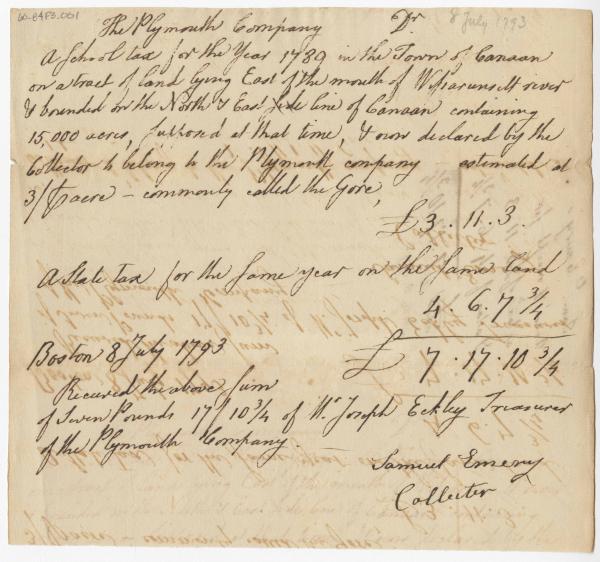 60-84P3.001
8 July 1793
The Plymouth Company Dr
A School tax for the Year 1789 in the Town of Canaan
on a tract of land lying East of the mouth of river
& bounded on the North & East side line of Canaan containing
15,000 acres, supposed at that time, & now declared by the
Collector to belong to the Plymouth company – estimated at
3/ acre – commonly called the Gore,
£3. 11. 3.
A State tax for the same year on the same land
4. 6. 7 3/4
£ 7. 17. 10 3/4
Boston 8 July 1793
Received the above sum
of Seven Pounds 17/ 10 3/4 of Mr Joseph Eckley Treasurer
of the Plymouth Company. –
Samuel Emery
Collector